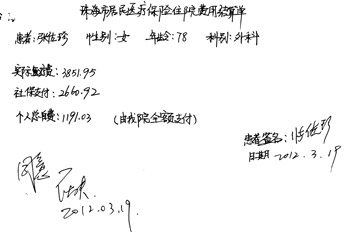 珠海市居民医疗保险住院费用结算单
患者:张桂珍 性别:女 年龄:78 科别:外科
实际缴费:3851.95
社保支付:2660.92
个人总自费:1191.03 (由我院全额支付)
患者签名:张桂珍
日期 2012.3.19
同意
2012.03.19.